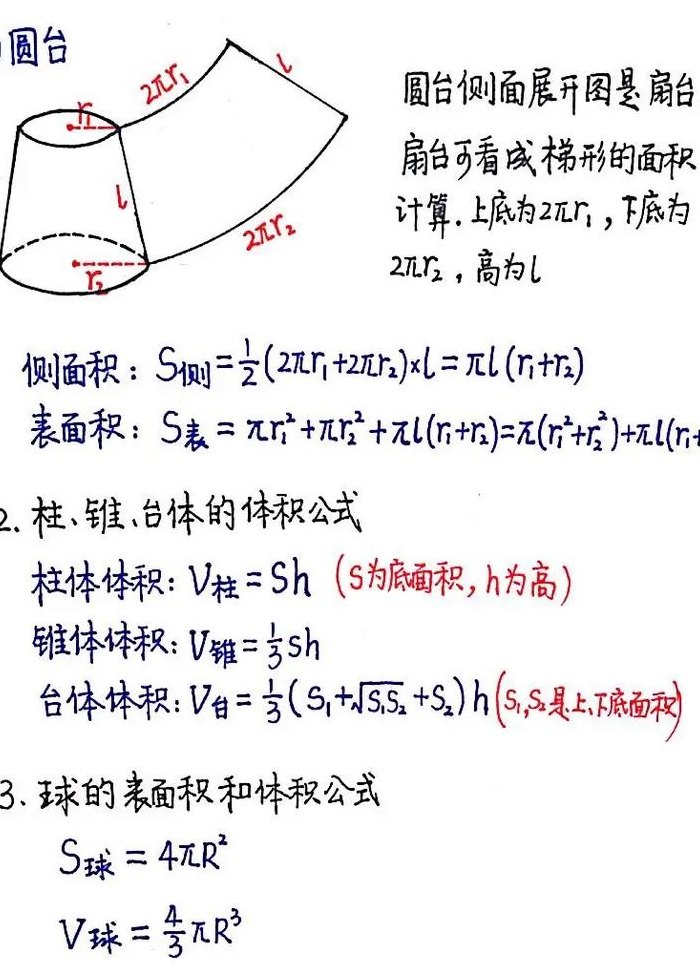 圆台
2πr₁
l
r₁
l
2πr₂
r₂
圆台侧面展开图是扇台
扇台可看成梯形的面积
计算.上底为2πr₁,下底为
2πr₂,高为l
侧面积: S侧=½(2πr₁+2πr₂)×l=πl(r₁+r₂)
表面积: S表=πr₁²+πr₂²+πl(r₁+r₂)=π(r₁²+r₂²)+πl(r₁+
2.柱、锥、台体的体积公式
柱体体积: V柱=Sh (S为底面积,h为高)
锥体体积: V锥=⅓sh
台体体积: V台=⅓(S₁+√S₁S₂+S₂)h(S₁,S₂是上、下底面积)
3.球的表面积和体积公式
S球=4πR²
V球=4/3πR³